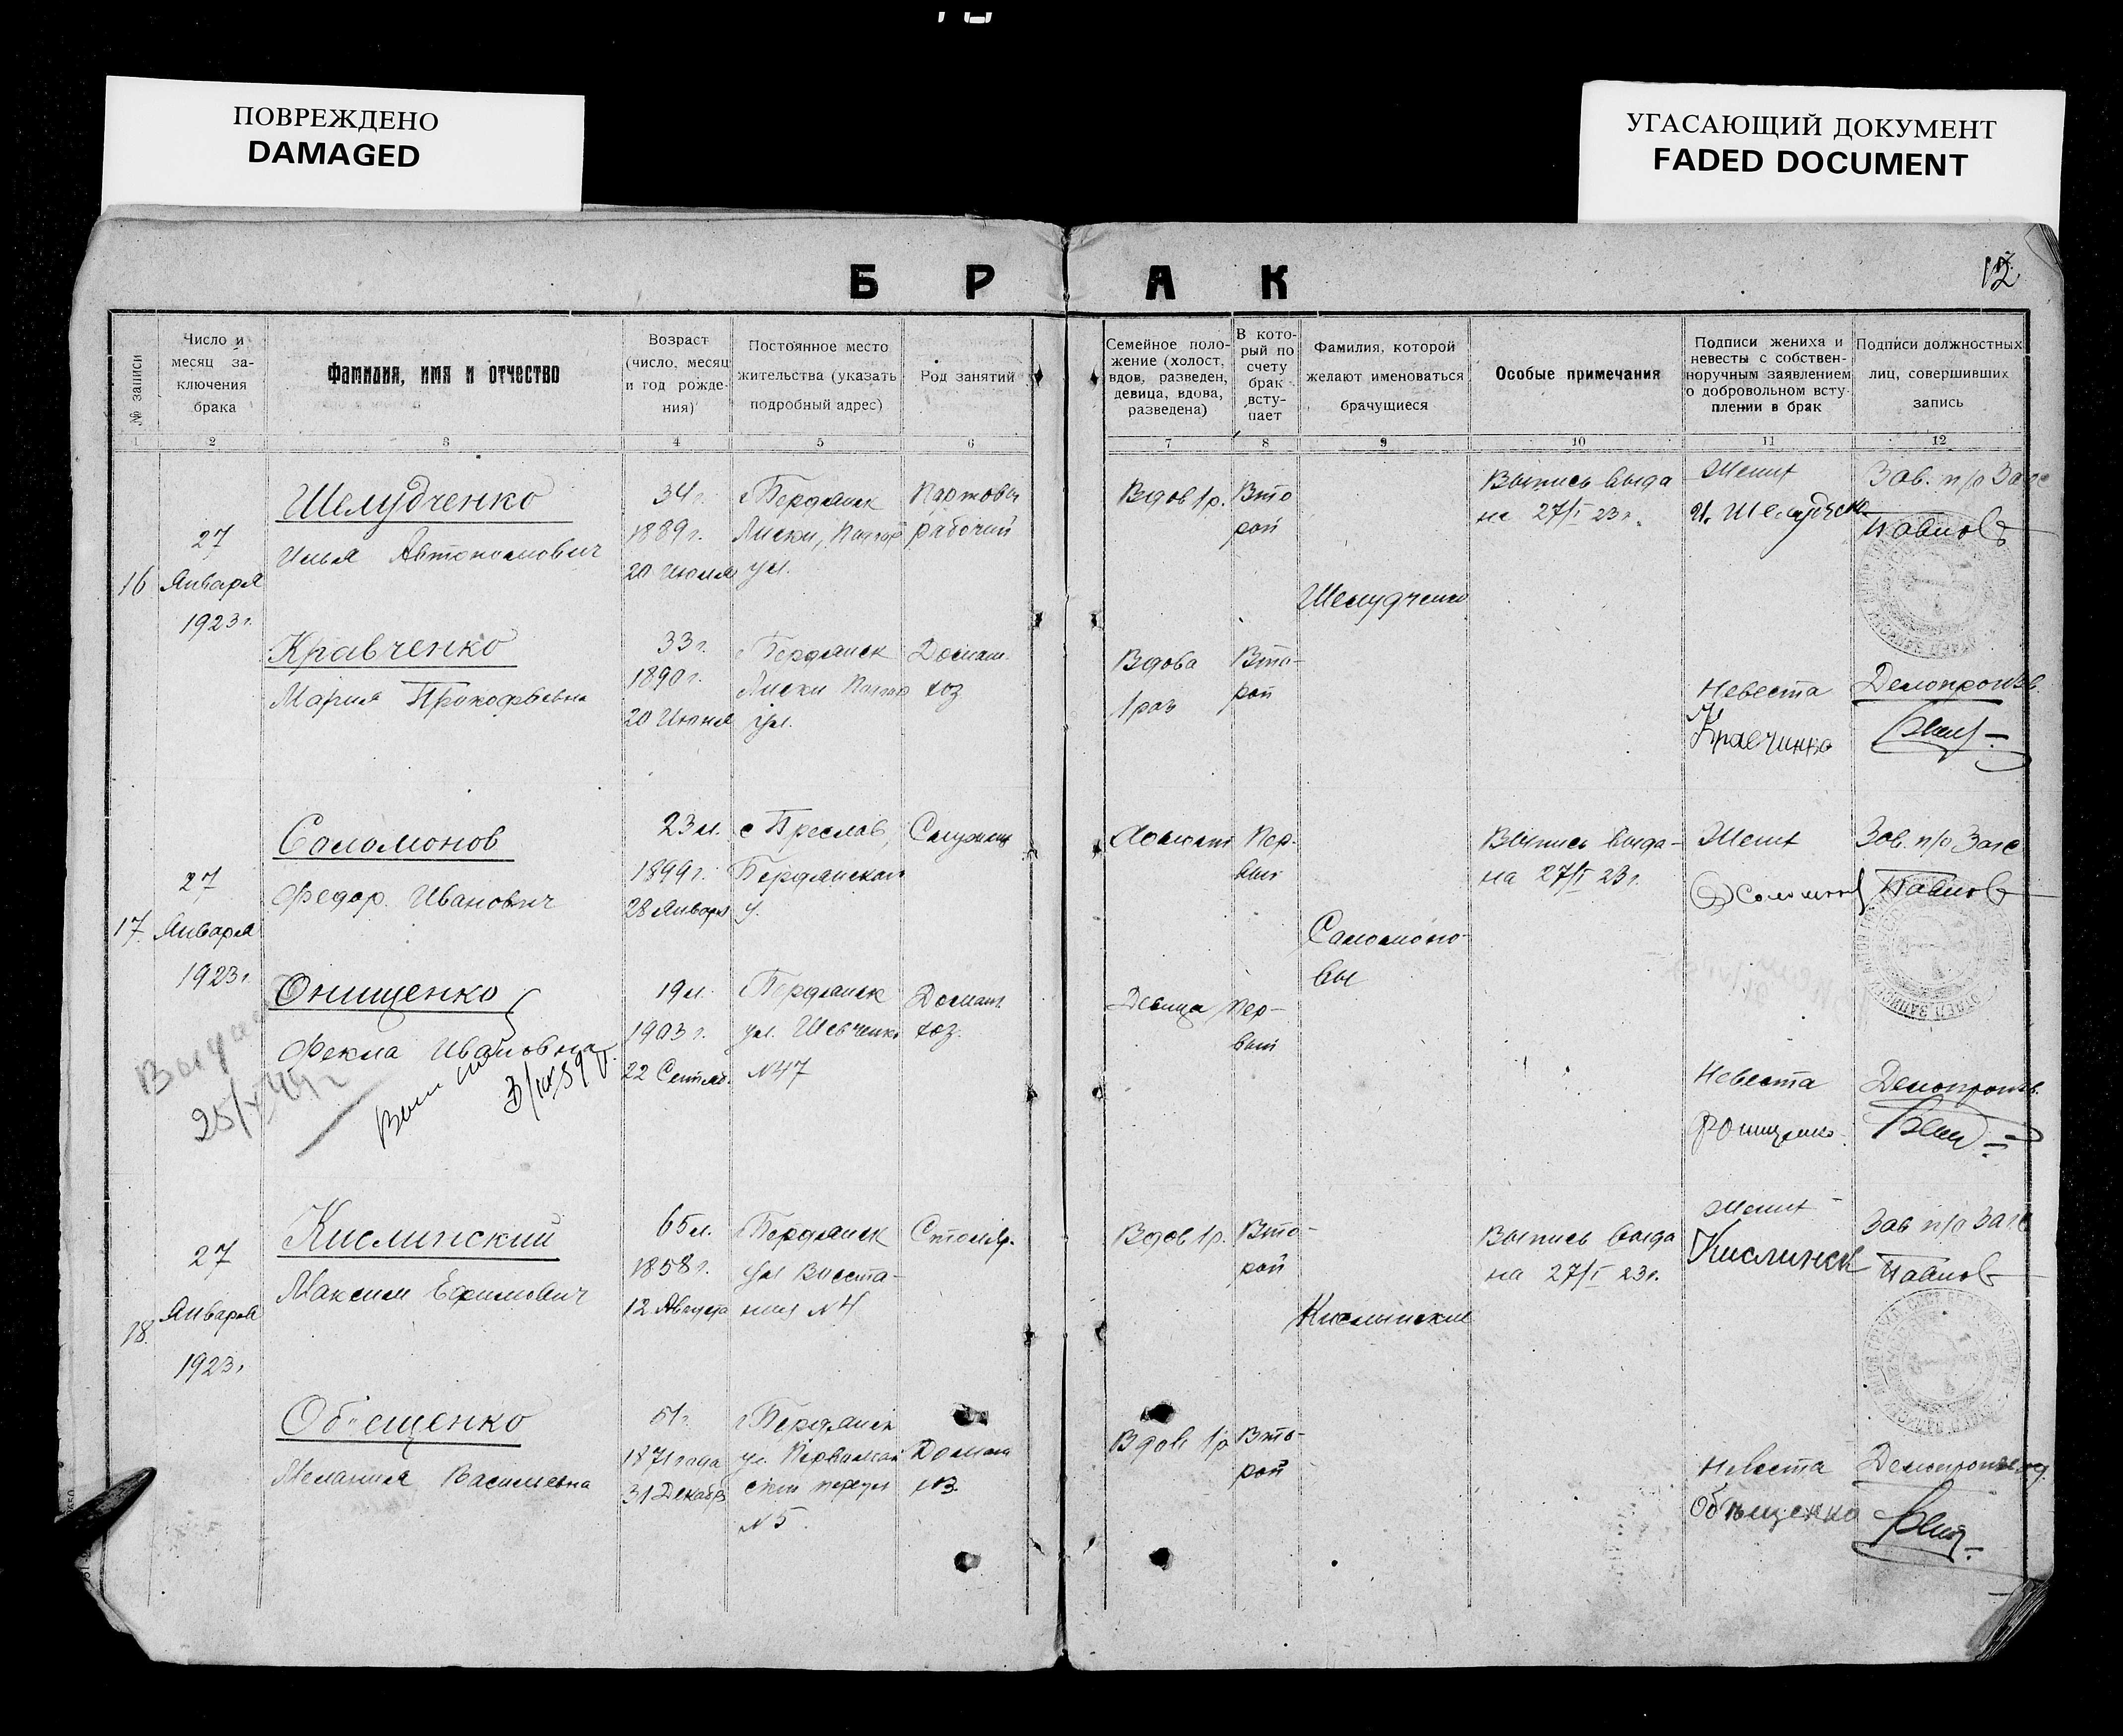 ПОВРЕЖДЕНО
DAMAGED
УГАСАЮЩИЙ ДОКУМЕНТ
FADED DOCUMENT
БРАК
12
№ записи
Число и
месяц за-
ключения
брака
Фамилия, имя и отчество
Возраст
(число, месяц
и год рожде-
ния)
Постоянное место
жительства (указать
подробный адрес)
Род занятий
Семейное поло-
жение (холост,
вдов, разведен,
девица, вдова,
разведена)
В кото-
рый по
счету
брак
всту-
пает
Фамилия, которой
желают именоваться
брачущиеся
Особые примечания
Подписи жениха и
невесты с собствен-
норучным заявлением
о добровольном всту-
плении в брак
Подписи должностных
лиц, совершивших
запись
1 2 3 4 5 6 7 8 9 10 11 12
16
27
Января
1923г.
Шелудченко
Илья Автономович
34г.
1889г.
20 Июля
г Бердянск
Лиски,
ул.
Портовый
рабочий
Вдов 1р.
Вто
рой
Шелудченко
Выпись выда
на 27/I 23г.
Жених
И. Шелудчен
Зав. п/о Загс
Павлов
Кравченко
Мария Прокофьевна
33г.
1890г.
20 Июня
г Бердянск
Лиски
ул.
Домаш.
хоз.
Вдова
1 раз
Вто-
рой
Невеста
М
Кравчинко
Делопроизв.
17.
27
Января
1923г
Соломонов
Федор Иванович
23 л.
1899г.
28 Января
с Преслав,
Бердянской
у.
Служащ
Холост
Пер-
вый
Соломоно-
вы
Выпись выда-
на 27/I 23г.
Жених
Соломонов
Зав. п/о Загс
Павлов
Онищенко
Фекла Ивановна
19 л.
1903г.
22 Сентяб.
Бердянск
ул. Шевченко
№47
Домаш
хоз.
Девица
Пер-
вый
Невеста
ФОнищенко
Делопроизв.
25/V 44г
3/IX 39г
18.
27
Января
1923г
Кислинский
Максим Ефимович
65л.
1858г.
12 Августа
г Бердянск
ул Восста-
ния №4
Столяр.
Вдов 1р.
Вто-
рой
Кислинские
Выпись выда
на 27/I 23г.
Жених
Кислинск
Зав п/о Загс
Павлов
Об'ещенко
Мелания Васильевна
51г.
1871 года
31 Декабр
г Бердянск
№5.
Домаш
хоз.
Вдов 1р
Вто-
рой
Невеста
Объщенко
Делопроизвод.